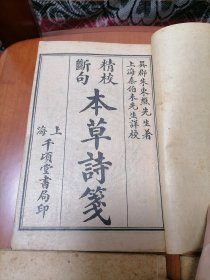 吳郡朱東樵先生著
上海秦伯未先生詳校
精校
斷句
本草詩箋
上海千頃堂書局印